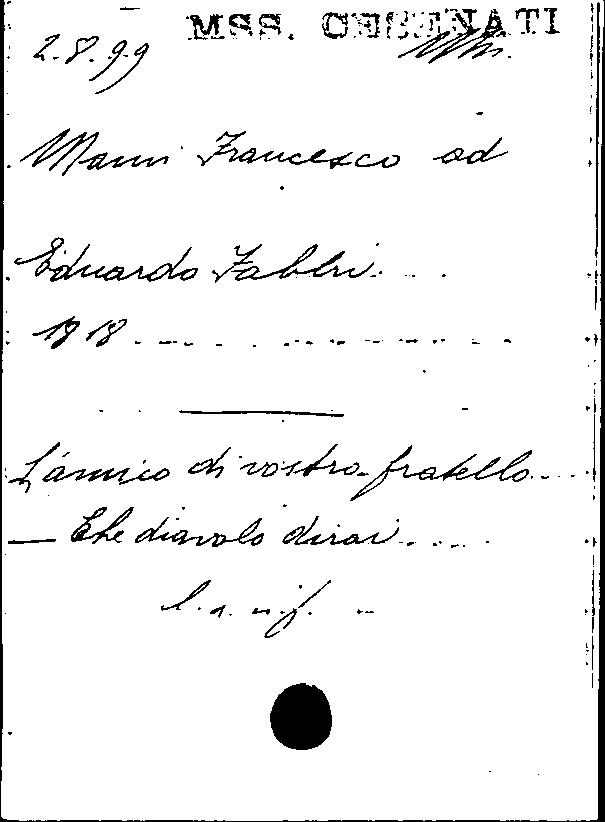 MSS. CESENATI
2.8.99
Mami Francesco ad
Eduardo Fabbri
1818
L'amico di vostro fratello
— Che diavolo dirai
l. a. n. f.